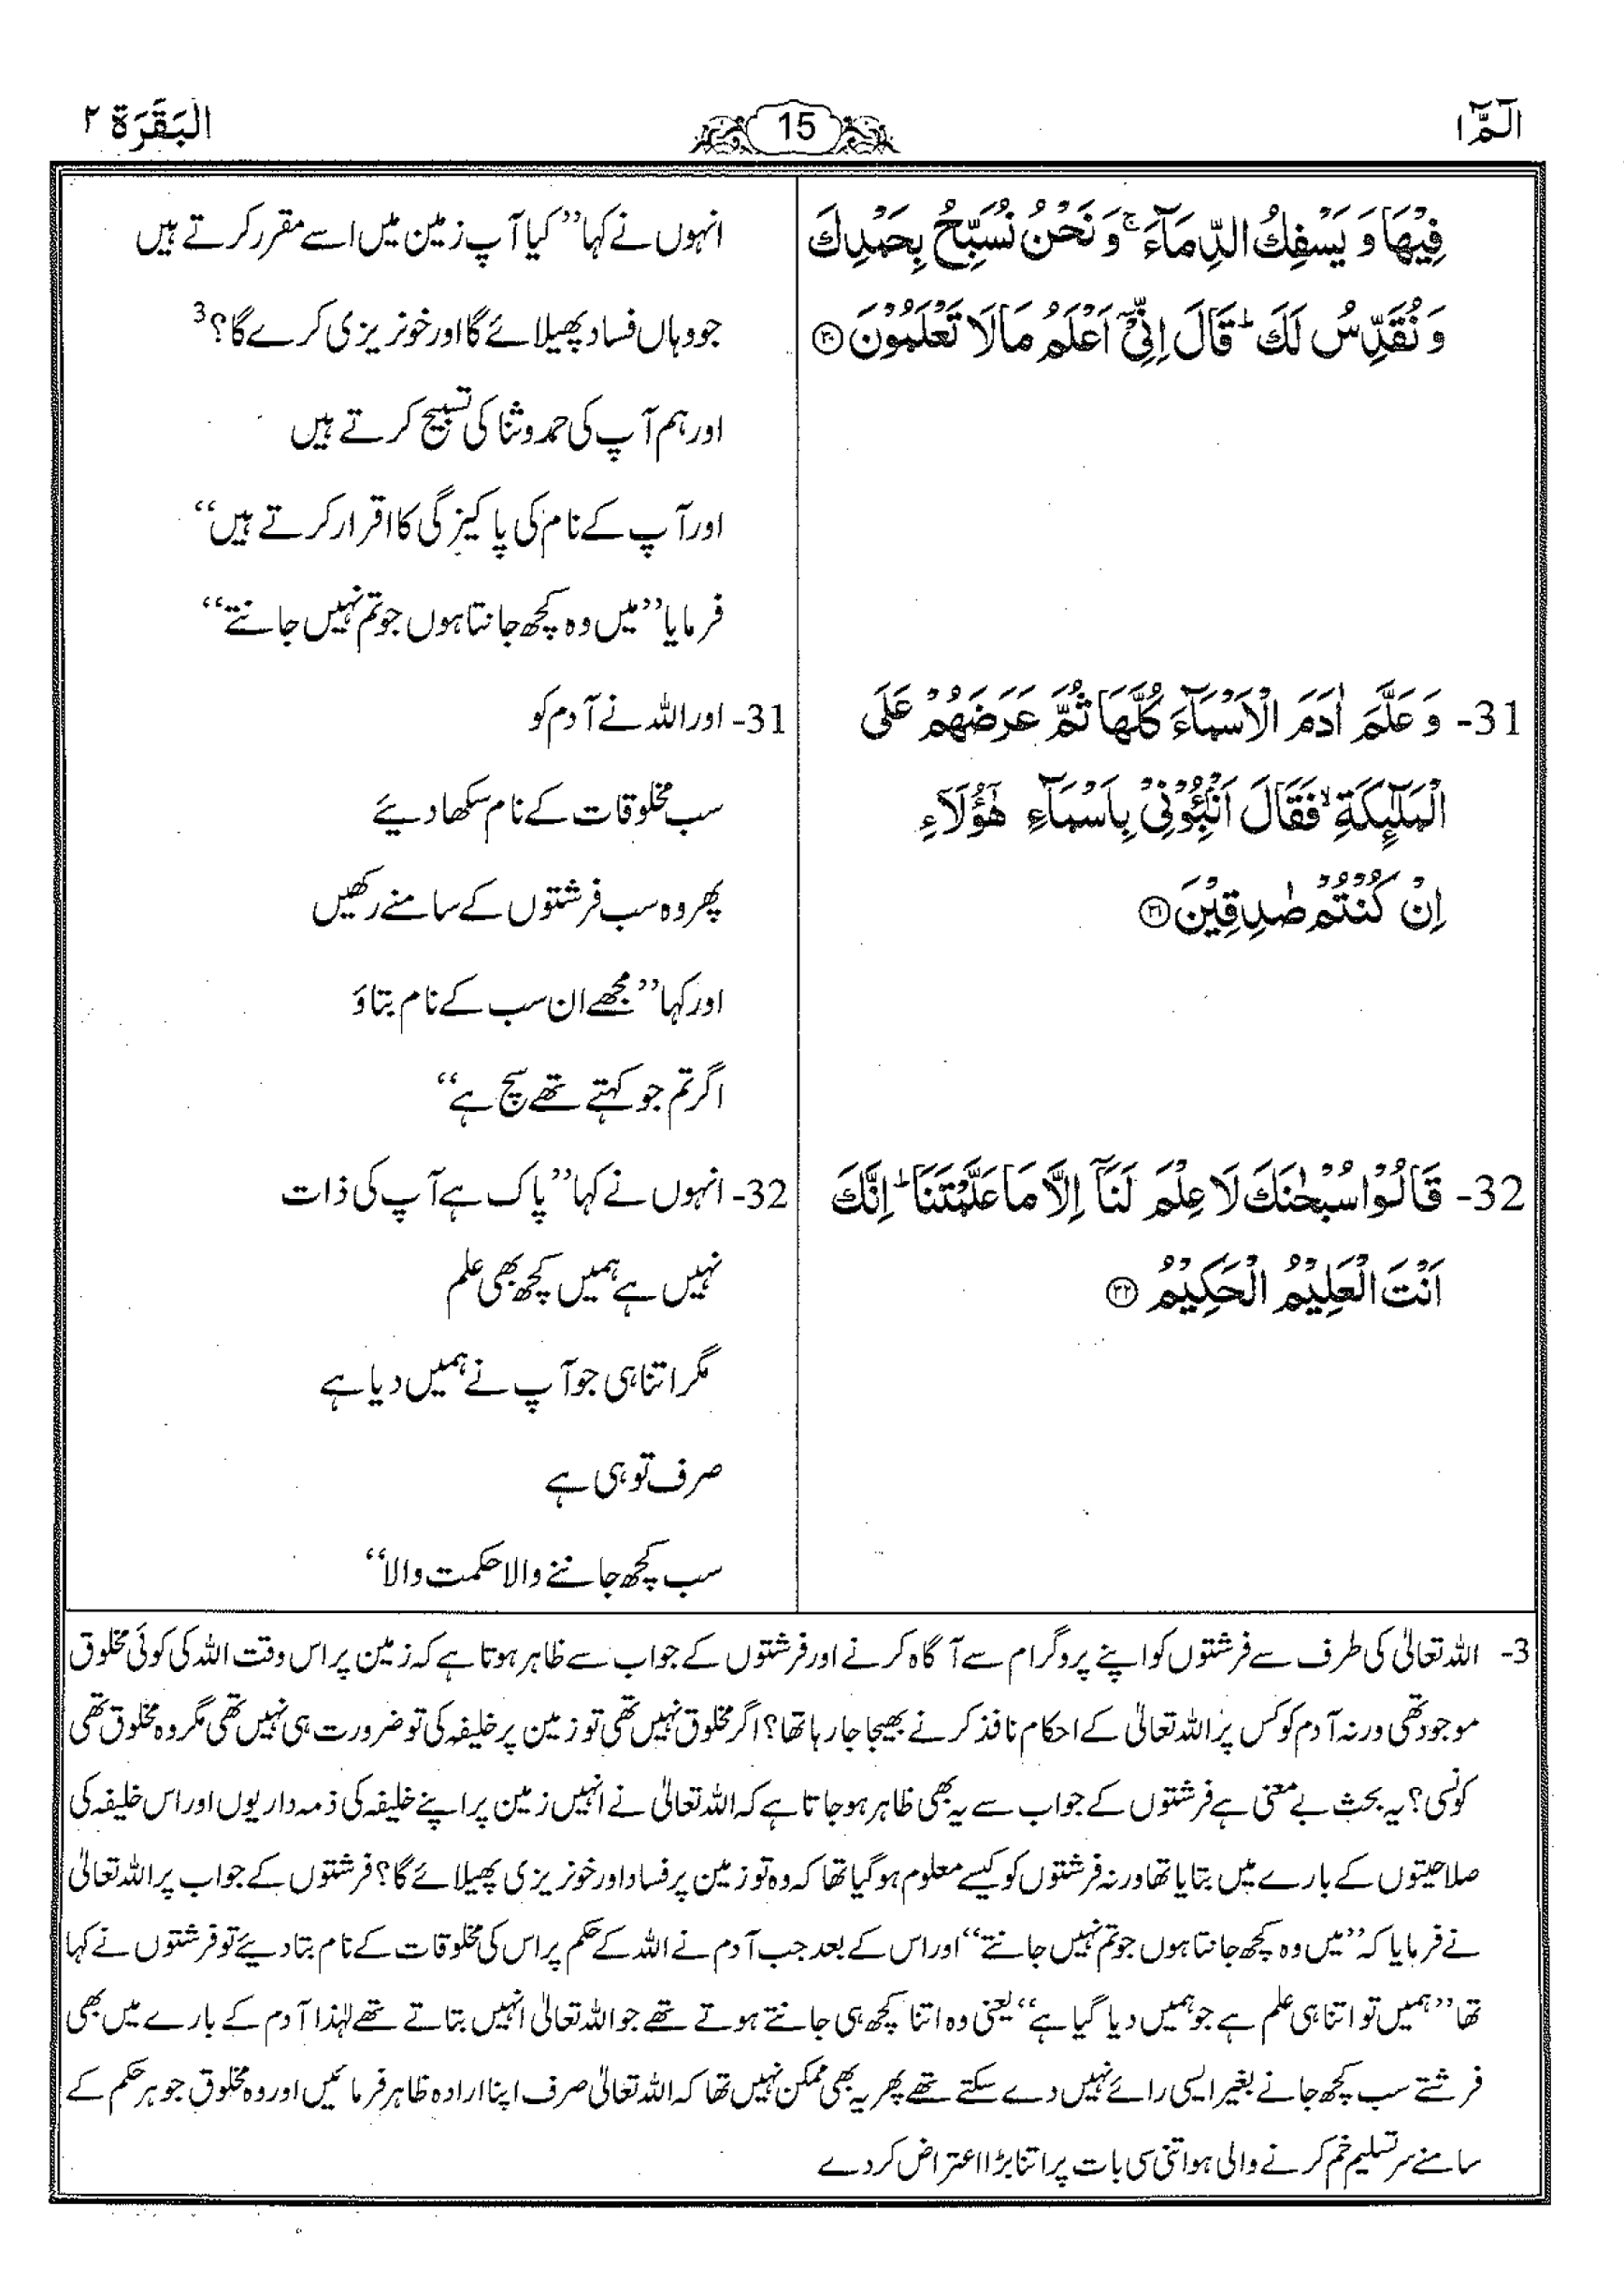 الٓمّٓ ١
15
البَقَرَة ٢
فِيْهَا وَ يَسْفِكُ الدِّمَآءَ ۚ وَ نَحْنُ نُسَبِّحُ بِحَمْدِكَ
وَ نُقَدِّسُ لَكَ ؕ قَالَ اِنِّیْۤ اَعْلَمُ مَا لَا تَعْلَمُوْنَ ۝۳۰
31- وَ عَلَّمَ اٰدَمَ الْاَسْمَآءَ كُلَّهَا ثُمَّ عَرَضَهُمْ عَلَی
الْمَلٰٓئِكَةِ ۙ فَقَالَ اَنْۢبِـُٔوْنِیْ بِاَسْمَآءِ هٰۤؤُلَآءِ
اِنْ كُنْتُمْ صٰدِقِیْنَ ۝۳۱
32- قَالُوْا سُبْحٰنَكَ لَا عِلْمَ لَنَاۤ اِلَّا مَا عَلَّمْتَنَا ؕ اِنَّكَ
اَنْتَ الْعَلِیْمُ الْحَكِیْمُ ۝۳۲
انہوں نے کہا ’’کیا آپ زمین میں اسے مقرر کرتے ہیں
جو وہاں فساد پھیلائے گا اور خونریزی کرے گا؟3
اور ہم آپ کی حمد و ثنا کی تسبیح کرتے ہیں
اور آپ کے نام کی پاکیزگی کا اقرار کرتے ہیں‘‘
فرمایا ’’میں وہ کچھ جانتا ہوں جو تم نہیں جانتے‘‘
31- اور اللہ نے آدم کو
سب مخلوقات کے نام سکھا دیئے
پھر وہ سب فرشتوں کے سامنے رکھیں
اور کہا ’’مجھے ان سب کے نام بتاؤ
اگر تم جو کہتے تھے سچ ہے‘‘
32- انہوں نے کہا ’’پاک ہے آپ کی ذات
نہیں ہے ہمیں کچھ بھی علم
مگر اتنا ہی جو آپ نے ہمیں دیا ہے
صرف تو ہی ہے
سب کچھ جاننے والا حکمت والا‘‘
3- اللہ تعالیٰ کی طرف سے فرشتوں کو اپنے پروگرام سے آگاہ کرنے اور فرشتوں کے جواب سے ظاہر ہوتا ہے کہ زمین پر اس وقت اللہ کی کوئی مخلوق
موجود تھی ورنہ آدم کو کس پر اللہ تعالیٰ کے احکام نافذ کرنے بھیجا جا رہا تھا؟ اگر مخلوق نہیں تھی تو زمین پر خلیفہ کی تو ضرورت ہی نہیں تھی مگر وہ مخلوق تھی
کونسی؟ یہ بحث بے معنی ہے فرشتوں کے جواب سے یہ بھی ظاہر ہو جاتا ہے کہ اللہ تعالیٰ نے انہیں زمین پر اپنے خلیفہ کی ذمہ داریوں اور اس خلیفہ کی
صلاحیتوں کے بارے میں بتایا تھا ورنہ فرشتوں کو کیسے معلوم ہو گیا تھا کہ وہ تو زمین پر فساد اور خونریزی پھیلائے گا؟ فرشتوں کے جواب پر اللہ تعالیٰ
نے فرمایا کہ ’’میں وہ کچھ جانتا ہوں جو تم نہیں جانتے‘‘ اور اس کے بعد جب آدم نے اللہ کے حکم پر اس کی مخلوقات کے نام بتا دیئے تو فرشتوں نے کہا
تھا ’’ہمیں تو اتنا ہی علم ہے جو ہمیں دیا گیا ہے‘‘ یعنی وہ اتنا کچھ ہی جانتے ہوتے تھے جو اللہ تعالیٰ انہیں بتاتے تھے لہٰذا آدم کے بارے میں بھی
فرشتے سب کچھ جانے بغیر ایسی رائے نہیں دے سکتے تھے پھر یہ بھی ممکن نہیں تھا کہ اللہ تعالیٰ صرف اپنا ارادہ ظاہر فرمائیں اور وہ مخلوق جو ہر حکم کے
سامنے سر تسلیم خم کرنے والی ہو اتنی سی بات پر اتنا بڑا اعتراض کر دے